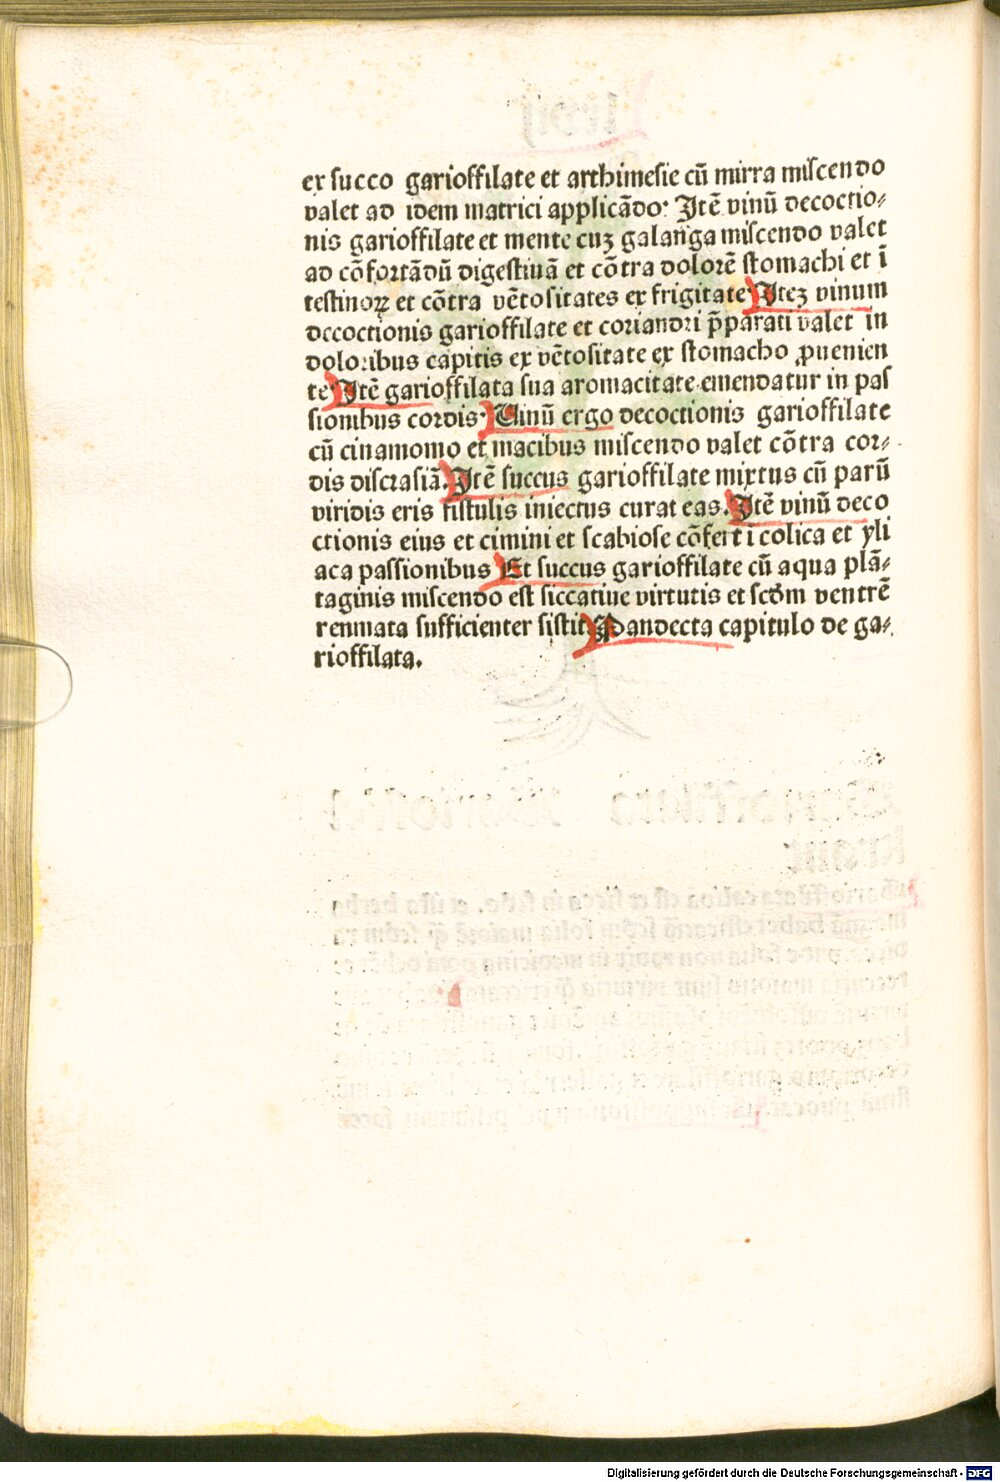 ex succo garioffilate et arthimesie cū mirra miscendo
valet ad idem matrici applicādo· Itē vinū decoctio⸗
nis garioffilate et mente cuʒ galanga miscendo valet
ad cōfortādū digestiuā et cōtra dolorē stomachi et ī
testinoꝝ et cōtra vētositates ex frigitate Iteʒ vinum
decoctionis garioffilate et coriandri p̄parati valet in
doloribus capitis ex vētositate ex stomacho ꝓuenien
te Itē garioffilata sua aromacitate emendatur in pas
sionibus cordis· Vinū ergo decoctionis garioffilate
cū cinamomo et macibus miscendo valet cōtra cor⸗
dis discrasiā. Itē succus garioffilate mixtus cū parū
viridis eris fistulis iniectus curat eas. Itē vinū deco
ctionis eius et cimini et scabiose cōfert ī colica et yli
aca passionibus Et succus garioffilate cū aqua plā⸗
taginis miscendo est siccatiue virtutis et scdm ventrē
renmata sufficienter sistit Pandecta capitulo de ga⸗
rioffilata.
Digitalisierung gefördert durch die Deutsche Forschungsgemeinschaft - DFG